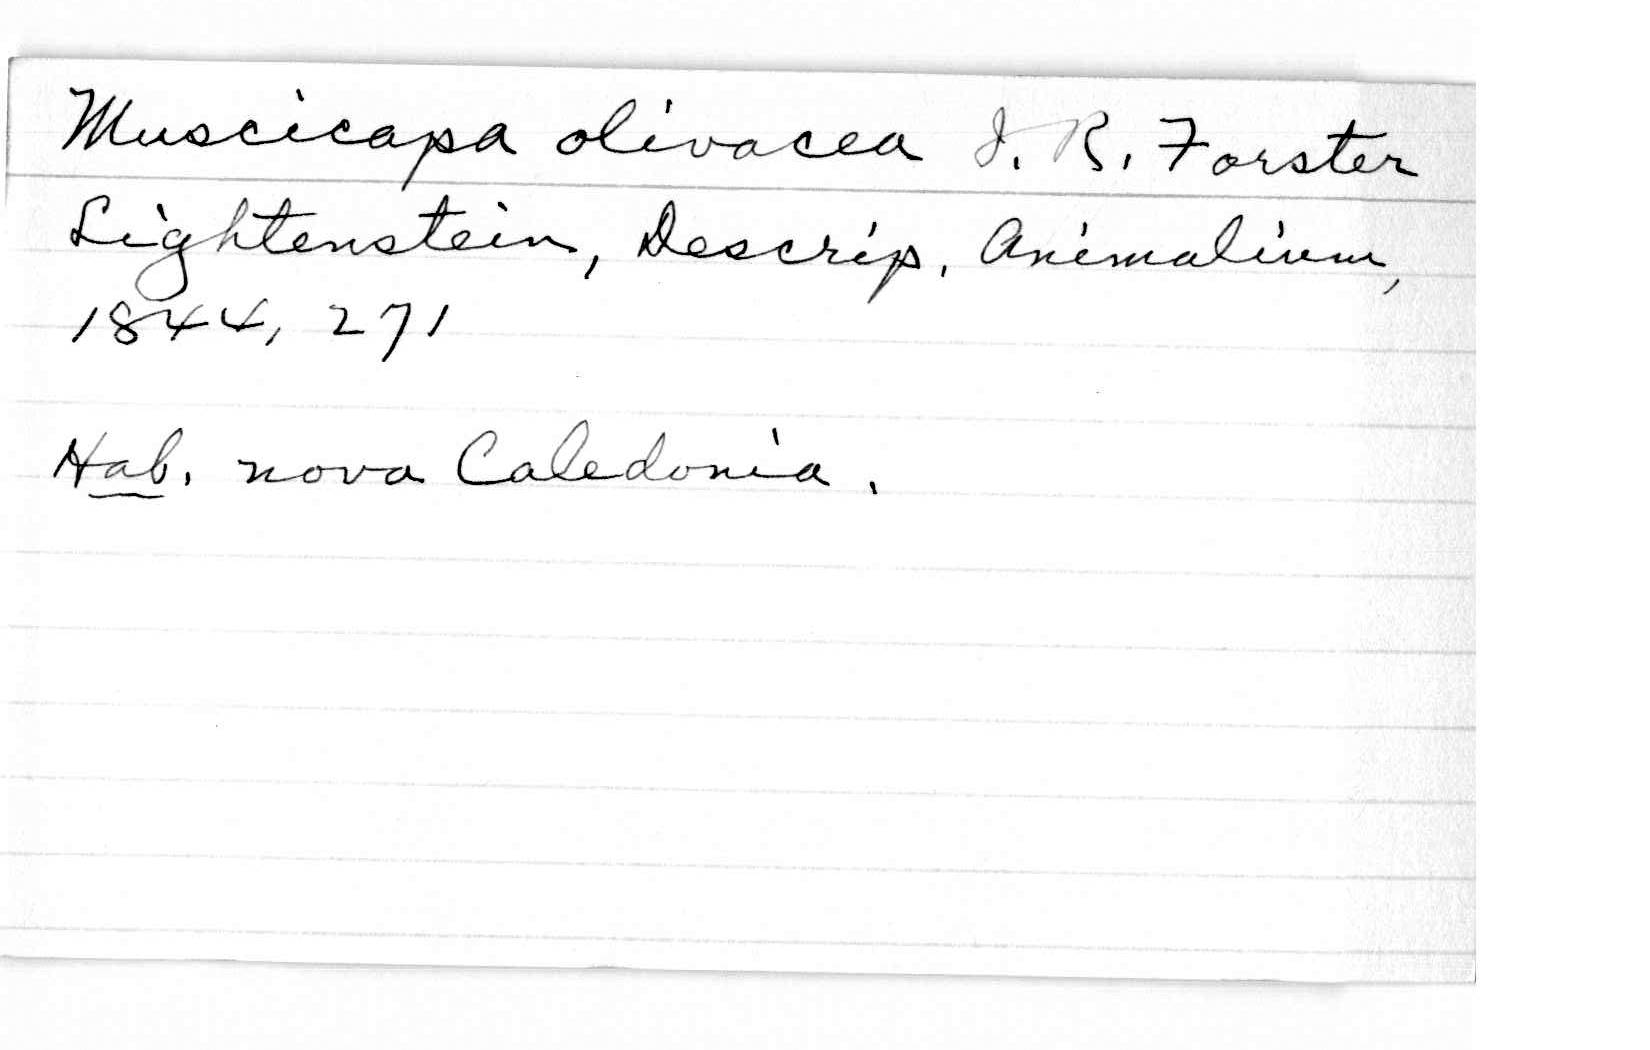 Muscicapa olivacea J. R. Forster
Lightenstein, Descrip. Animalium,
1844, 271
Hab. nova Caledonia.